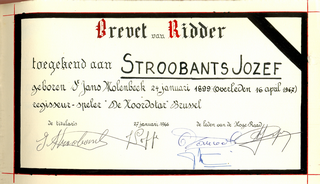 Brevet van Ridder
toegekend aan STROOBANTS JOZEF
geboren St Jans Molenbeek 24 januari 1899 (overleden 16 april 1967)
regisseur-speler "De Noordstar" Brussel
de titularis 27 januari 1966 de leden van de Hoge Raad